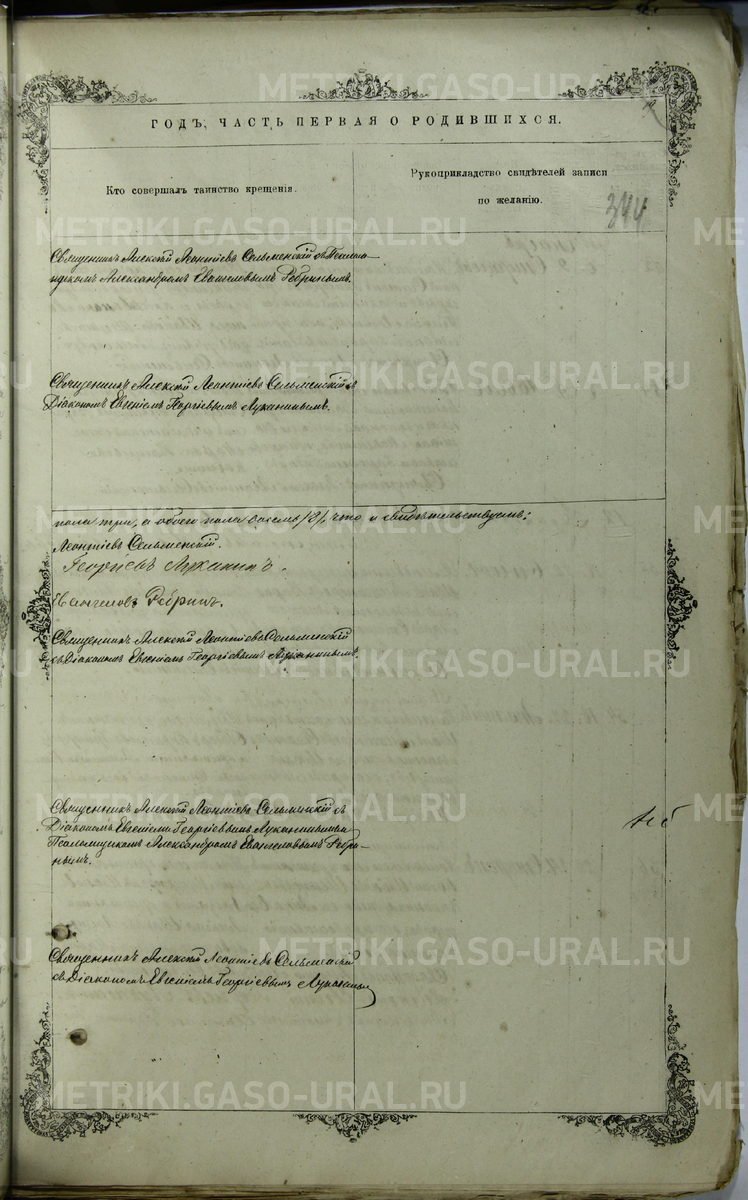 METRIKI.GASO-URAL.RU
ГОДЪ, ЧАСТЬ ПЕРВАЯ О РОДИВШИХСЯ.
Кто совершалъ таинство крещенія.
Рукоприкладство свидѣтелей записи
по желанію.
344
Священникъ Алексій Леонтіевъ Сельменскій съ Псаломщикомъ Александромъ Евангеловымъ Ребринымъ.
Священникъ Алексій Леонтіевъ Сельменскій съ
Діакономъ Евгеніемъ Георгіевымъ Луканинымъ.
пола три, а обоего пола восемь /8/, что и свидѣтельствуемъ:
Леонтіевъ Сельменскій.
Георгіевъ Луканинъ.
Евангеловъ Ребринъ.
Священникъ Алексій Леонтіевъ Сельменскій
съ Діакономъ Евгеніемъ Георгіевымъ Луканинымъ.
Священникъ Алексій Леонтіевъ Сельменскій съ
Діакономъ Евгеніемъ Георгіевымъ Луканинымъ
Псаломщикомъ Александромъ Евангеловымъ Ребри-
нымъ.
Священникъ Алексій Леонтіевъ Сельменскій
съ Діакономъ Евгеніемъ Георгіевымъ Луканины